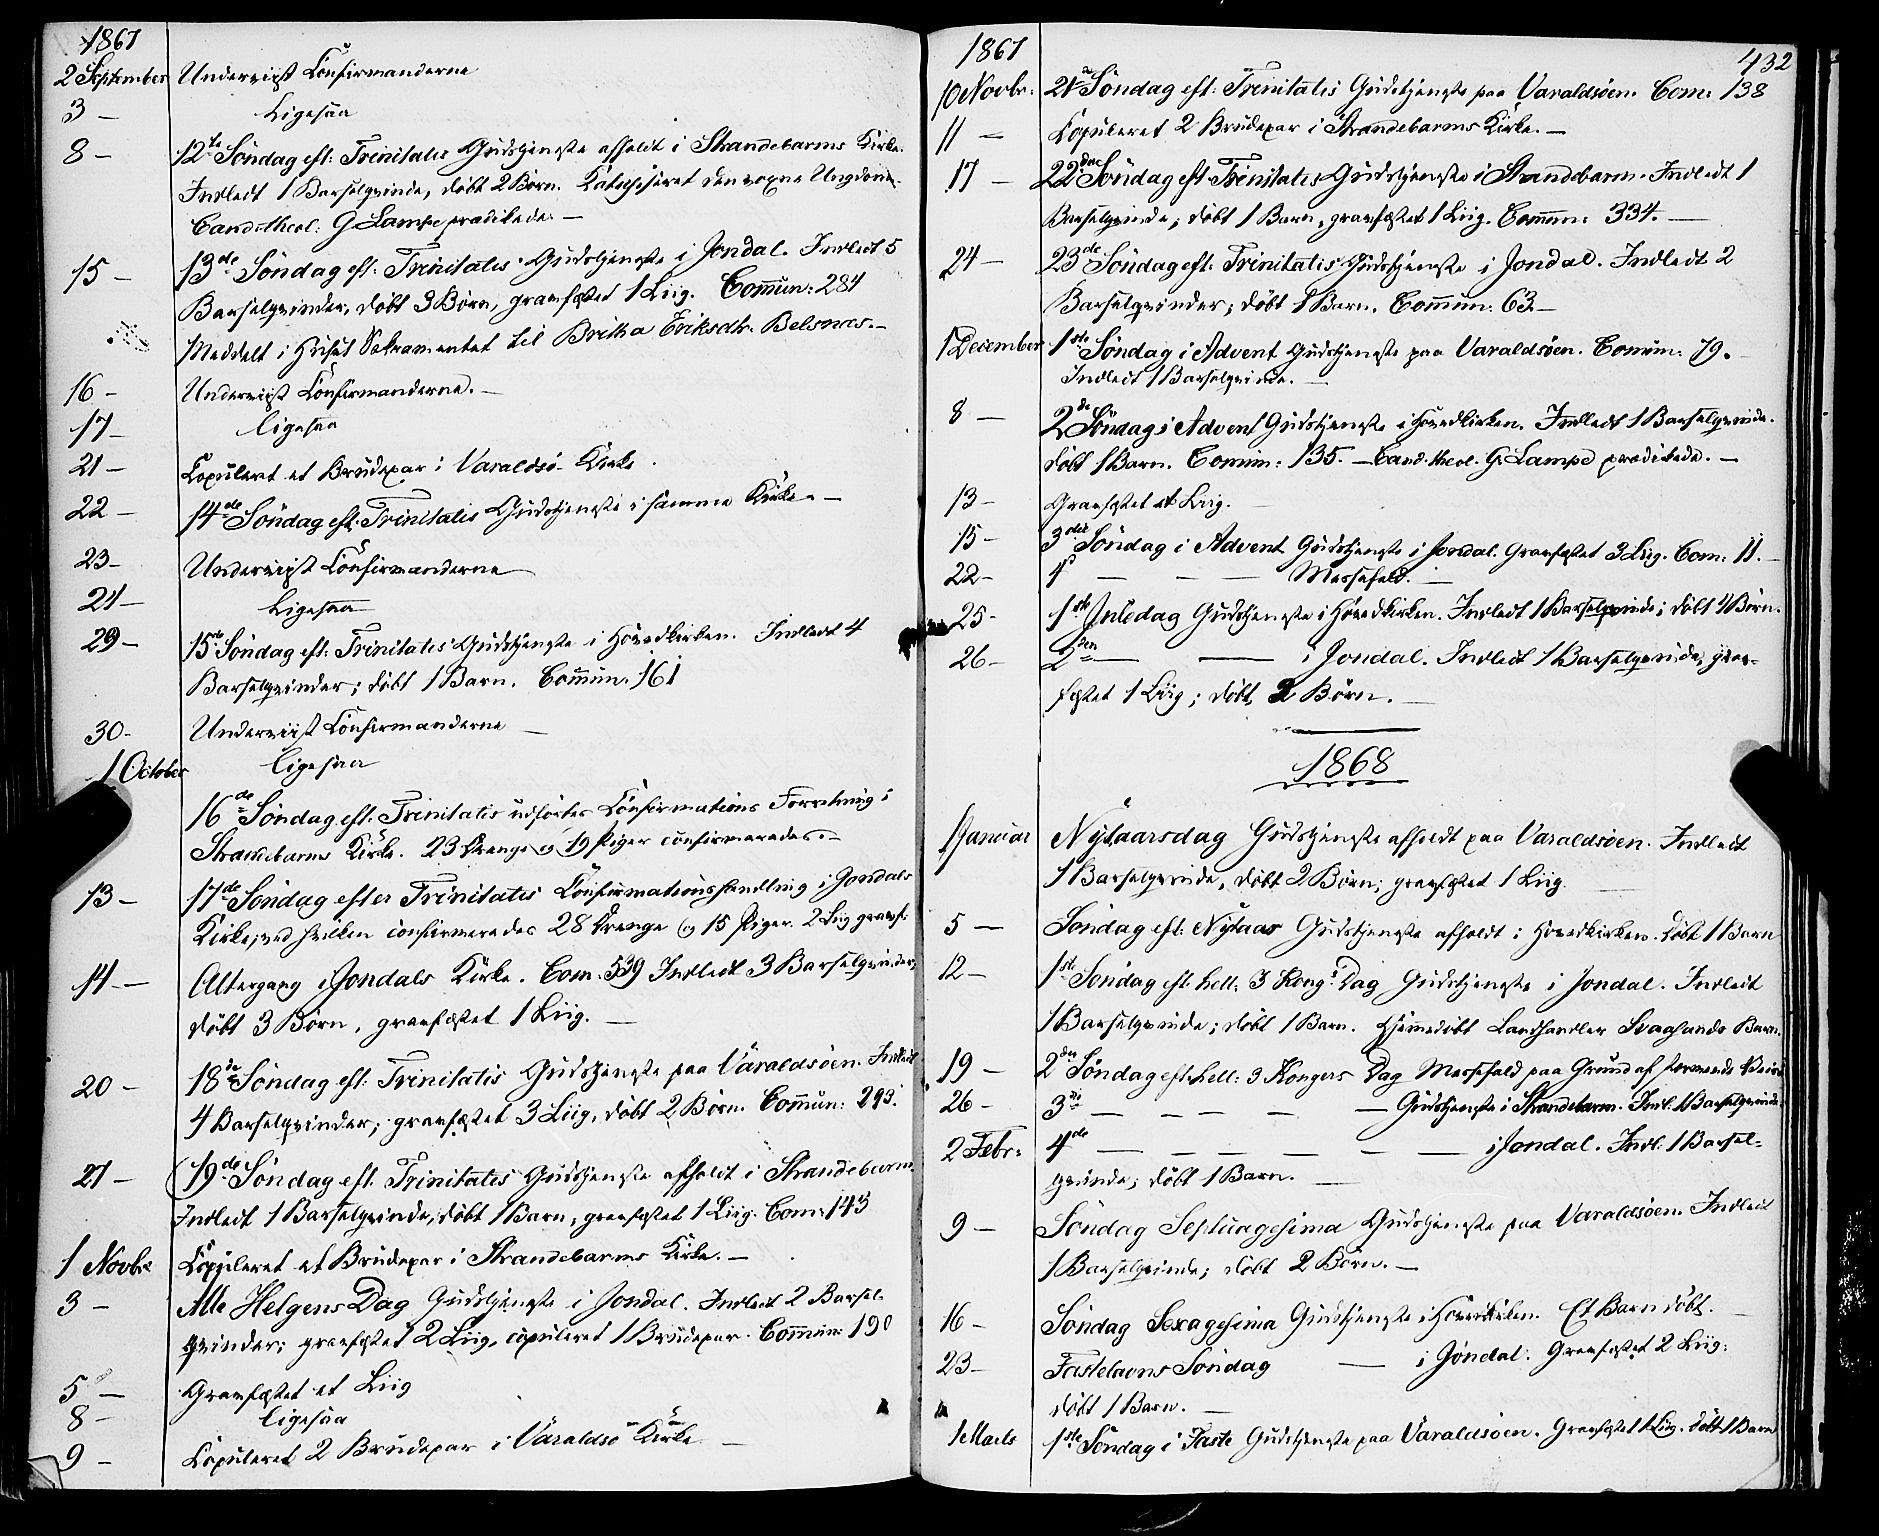 1867
2 September Underviist Confirmanderne
3 — Ligesaa
8 — 12te Søndag eft: Trinitatis Gudstjeneste afholdt i Strandebarms Kirke.
Indledt 1 Barselqvinde, døbt 2 Børn. Katechiseret den voxne Ungdom.
Cand. theol: G. Lampe prædikede. —
15 — 13de Søndag eft: Trinitatis Gudstjeneste i Jondal. Indledt 5
Barselqvinder, døbt 3 Børn, gravfæstet 1 Liig. Commun: 284
Meddelt i Huset Sakramentet til Britha Eriksdtr. Belsnes. —
16 — Underviist Confirmanderne. —
17 — ligesaa
21 — Copuleret et Brudepar i Varaldsö Kirke.
22 — 14de Søndag eft. Trinitatis Gudstjeneste i samme Kirke. —
23 — Underviist Confirmanderne
24 — Ligesaa
29 — 15de Søndag eft: Trinitatis Gudstjeneste i Hovedkirken. Indledt 4
Barselqvinder; døbt 1 Barn. Commun. 161
30 — Underviist Confirmanderne —
1 October ligesaa
16de Søndag eft. Trinitatis udførtes Confirmations Forretning i
Strandebarms Kirke. 23 Drenge og 19 Piger confirmeredes. —
13 — 17de Søndag efter Trinitatis Confirmationshandling i Jondals
Kirke, ved hvilken confirmeredes 28 Drenge og 15 Piger. 2 Liig gravf:
14 — Altergang i Jondals Kirke. Com. 539 Indledt 3 Barselqvinder,
døbt 3 Børn, gravfæstet 1 Liig. —
20 — 18de Søndag eft: Trinitatis Gudstjeneste paa Varaldsöen. Indledt
4 Barselqvinder; gravfæstet 3 Liig, døbt 2 Børn. Commun: 293.
27 — 19de Søndag eft. Trinitatis Gudstjeneste afholdt i Strandebarm
Indledt 1 Barselqvinde, døbt 1 Barn, gravfæstet 1 Liig. Com: 143
1 Novbr Copuleret et Brudepar i Strandebarms Kirke. —
3 — Alle Helgens Dag Gudstjeneste i Jondal. Indledt 2 Barsel-
qvinder; gravfæstet 2 Liig, copuleret 1 Brudepar. Commun 190
5 — Gravfæstet et Liig
8 — ligesaa
9 — Copuleret 2 Brudepar i Varaldsö Kirke —
432
1867
10 Novbr: 21de Søndag eft: Trinitatis Gudstjeneste paa Varaldsöen. Com: 138
11 — Copuleret 2 Brudepar i Strandebarms Kirke. —
17 — 22de Søndag eft Trinitatis Gudstjeneste i Strandebarm. Indledt 1
Barselqvinde; døbt 1 Barn, gravfæstet 1 Liig. Commun: 334. —
24 — 23de Søndag eft: Trinitatis Gudstjeneste i Jondal. Indledt 2
Barselqvinder; døbt 1 Barn. Commun: 63. —
1 December 1ste Søndag i Advent Gudstjeneste paa Varaldsöen. Comun: 79. —
Indledt 1 Barselqvinde. —
8 — 2de Søndag i Advent Gudstjeneste i Hovedkirken. Indledt 1 Barselqvinde.
døbt 1 Barn. Comun: 135. — Cand. theol. G. Lampe prædikede. —
13 — Gravfæstet et Liig. —
15 — 3die Søndag i Advent Gudstjeneste i Jondal. Gravfæstet 3 Liig. Com: 11. —
22 — 4d — — — Messefald. —
25 — 1ste Juledag Gudstjeneste i Hovedkirken. Indledt 1 Barselqvinde; døbt 4 Børn.
26 — 2den — — i Jondal. Indledt 1 Barselqvinde, grav-
fæstet 1 Liig; døbt 2 Børn. —
1868
1 Januar Nytaarsdag Gudstjeneste afholdt paa Varaldsöen. Indledt
1 Barselqvinde, døbt 2 Børn; gravfæstet 1 Liig. —
5 — Søndag eft: Nytaar Gudstjeneste afholdt i Hovedkirken. døbt 1 Barn
12 — 1ste Søndag eft. hell. 3 Kong: Dag Gudstjeneste i Jondal. Indledt
1 Barselqvinde; døbt 1 Barn. Hjemmedøbt Landhandler Svaasands Barn.
19 — 2den Søndag eft. hell: 3 Kongers Dag Messefald paa Grund af stormende Veir
26 — 3die — — — — — Gudstjeneste i Strandebarm. Indl: 1 Barselqvinde
2 Febr: 4de — — — — — — i Jondal. Indl: 1 Barsel-
qvinde; døbt 1 Barn. —
9 — Søndag Septuagesima Gudstjeneste paa Varaldsöen. Indledt
1 Barselqvinde; døbt 2 Børn. —
16 — Søndag Sexagesima Gudstjeneste i Hovedkirken. Et Barn døbt. —
23 — Fastelavns Søndag — i Jondal. Gravfæstet 2 Liig:
døbt 1 Barn. —
1 Marts 1ste Søndag i Faste Gudstjeneste paa Varaldsöen. Gravfæstet 1 Liig. døbt 1 Barn